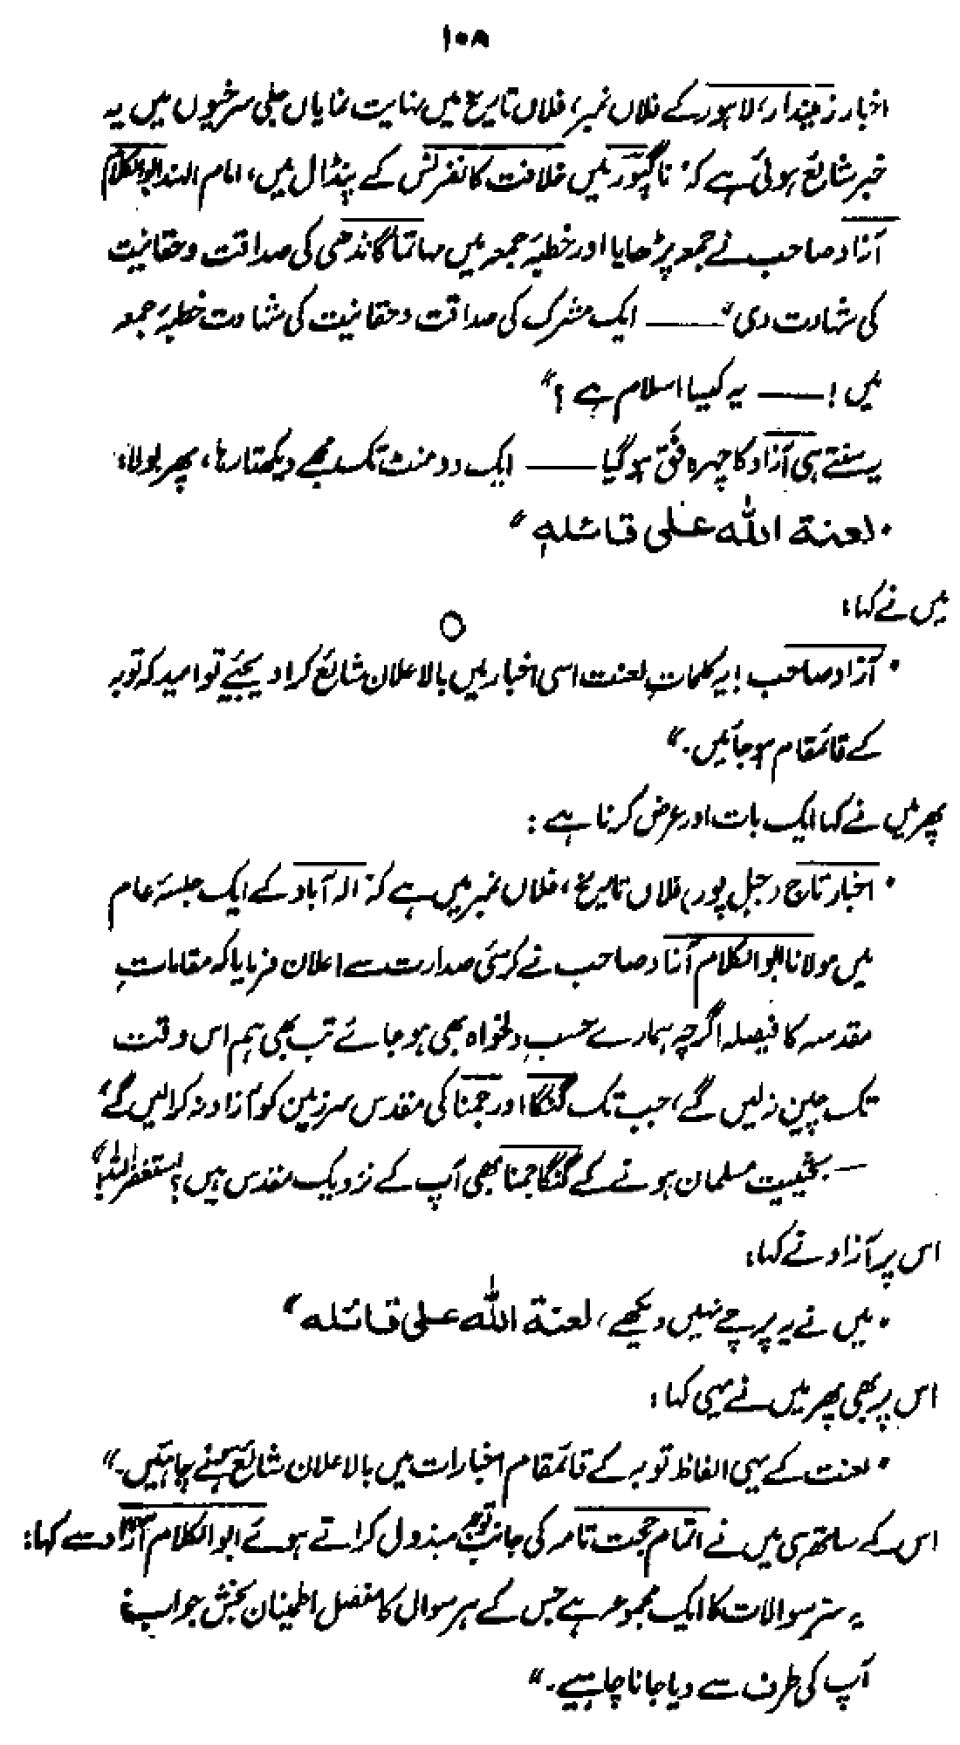 ۱۰۸
اخبار زمیندار، لاہور کے فلاں نمبر، فلاں تاریخ میں نہایت نمایاں جلی سرخیوں میں یہ
خبر شائع ہوئی ہے کہ ’ ناگپور میں خلافت کانفرنس کے پنڈال میں، امام الہند ابوالکلام
آزاد صاحب نے جمعہ پڑھایا اور خطبۂ جمعہ میں مہاتما گاندھی کی صداقت و حقانیت
کی شہادت دی“ —— ایک مشرک کی صداقت و حقانیت کی شہادت خطبۂ جمعہ
میں! —— یہ کیسا اسلام ہے ؟“
یہ سنتے ہی آزاد کا چہرہ فق ہو گیا —— ایک دو منٹ تک مجھے دیکھتا رہا، پھر بولا:
” لعنة الله على قائله “
میں نے کہا:
” آزاد صاحب! یہ کلماتِ لعنت اسی اخبار میں بالاعلان شائع کرا دیجئیے تو امید کہ توبہ
کے قائمقام ہو جائیں۔“
پھر میں نے کہا ایک بات اور عرض کرنا ہے :
” اخبار تاج (جبل پور) فلاں تاریخ، فلاں نمبر میں ہے کہ ’ الہ آباد کے ایک جلسۂ عام
میں مولانا ابوالکلام آزاد صاحب نے کرسیٔ صدارت سے اعلان فرمایا کہ مقاماتِ
مقدسہ کا فیصلہ اگرچہ ہمارے حسبِ دلخواہ بھی ہو جائے تب بھی ہم اس وقت
تک چین نہ لیں گے، جب تک گنگا اور جمنا کی مقدس سرزمین کو آزاد نہ کرا لیں گے‘
— بحیثیت مسلمان ہونے کے گنگا جمنا بھی آپ کے نزدیک مقدس ہیں؟ استغفراللہ!“
اس پر آزاد نے کہا:
” میں نے یہ پرچے نہیں دیکھے، لعنة الله على قائله “
اس پر بھی پھر میں نے یہی کہا:
” لعنت کے یہی الفاظ توبہ کے قائمقام اخبارات میں بالاعلان شائع ہونے چاہئیں۔“
اس کے ساتھ ہی میں نے اتمام حجت تامہ کی جانب توجہ مبذول کراتے ہوئے ابوالکلام آزاد سے کہا:
یہ ستر سوالات کا ایک مجموعہ ہے جس کے ہر سوال کا مفصل اطمینان بخش جواب
آپ کی طرف سے دیا جانا چاہیے۔“